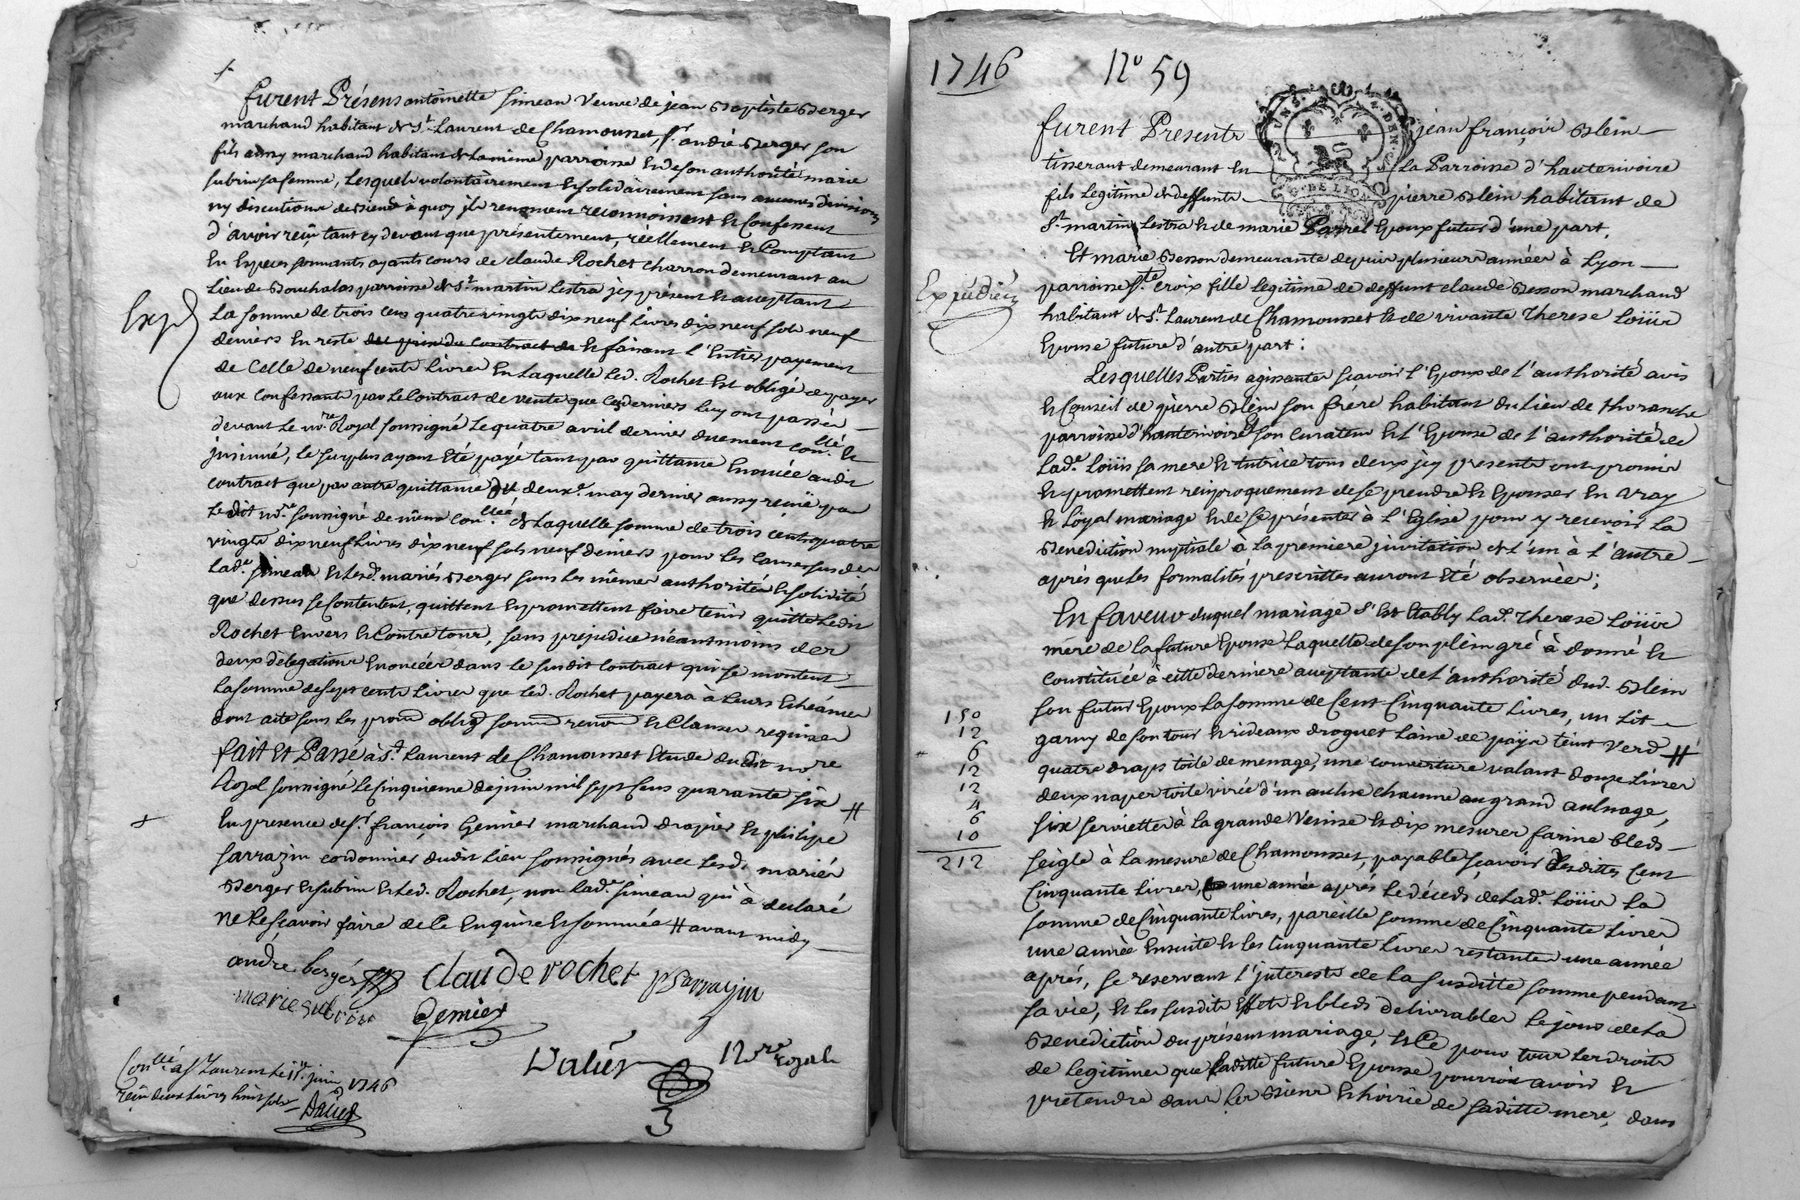 furent Présens antoinette simean veuve de jean Baptiste Berger
marchand habitant de St. Laurent de Chamousset, Sr. andré Berger son
fils aussy marchand habitant de la même parroisse et de son authorité marie
subrin sa femme, Lesquels volontairement et solidairement sans aucunes divisions
ny discutions de siens à quoy ils renoncent reconnoissent et Confessent
d'avoir reçu tant cy devant que présentement, réellement et Comptant
en especes sonnants ayants cours de claude Rochet charron demeurant au
Lieu de Bouchalas parroisse de St. martin Lestra jcy présent et acceptant
La somme de trois cens quatre vingts dix neuf livres dix neuf sols neuf
deniers en reste et faisant l'entier payement
de Celle de neuf cents livres en Laquelle led. Rochet est obligé de payer
aux confessants par le Contract de vente que ces derniers luy ont passé
devant le no.re Royal soussigné le quatre avril dernier duement con.llé et
jnsinué, le surplus ayant été payé tant par quittance enoncée audit
contract que par autre quittance du deuxe. may dernier aussy reçüe par
ledit no.re soussigné de même con.llée de laquelle somme de trois cents quatre
vingts dix neuf livres dix neuf sols neuf deniers pour les causes susdes
lade. simean et lesd. mariés Berger sous les mêmes authorités et solidité
que dessus se Contentent, quittent et promettent faire tenir quitte ledit
Rochet envers et Contre tous, sans préjudice néantmoins des
deux délégations enoncées dans le susdit contract qui se montent
la somme de sept cents livres que led. Rochet payera à leurs échéances
dont acte sous les prom. oblig. soum. renon. et Clauses requises
fait et Passé à St. Laurent de Chamousset Etude dudit no.re
Royal soussigné le Cinquieme de juin mil sept cens quarante six #
en presence de Sr. françois Gemier marchand drapier et philipe
sarrazin cordonnier dudit lieu soussignés avec lesd. mariés
Berger et subrin et led. Rochet, non lad.e simean qui à declaré
ne le sçavoir faire de Ce enquise et sommée # avant midy
Exp.d
andré bergér Claude rochet p Sarrazin
marie subrin Gemier
Dalier No.re royal
Con.llé à St. Laurent le juin 1746
reçu deux livres huit sols Dalier
1746 No 59
furent Presents jean françois Blein
tisserant demeurant en la Parroisse d'hauterivoire
fils legitime de deffunts pierre Blein habitant de
St. martin Lestra et de marie Parrel Epoux futur d'une part,
Et marie Besson demeurante depuis plusieurs années à Lyon
parroisse Ste. croix fille legitime de deffunt claude Besson marchand
habitant de St. Laurent de Chamousset et de vivante Therese Loüis
Epouse future d'autre part :
Expédiée
Lesquelles Parties agissantes sçavoir l'Epoux de l'authorité avis
et Conseil de pierre Blein son frere habitant du Lieu de thoranche
parroisse d'hauterivoire son curateur et l'Epouse de l'authorité de
lad.e Loüis sa mere et tutrice tous deux jcy presents ont promis
et promettent reciproquement de se prendre et epouser en vray
et Loyal mariage et de se présenter à l'Eglise pour y recevoir la
Benediction nuptiale à la premiere jnvitation de l'un à l'autre
après que les formalités prescrittes auront été observées ;
En faveur duquel mariage s'est étably lad.e Therese Loüis
mere de la future Epouse laquelle de son plein gré à donné et
constituée à cette derniere acceptante de l'authorité dud. Blein
son futur Epoux la somme de Cent Cinquante livres, un lit
garny de son tour et rideaux droguet laine de païs teint verd #
quatre draps toile de menage, une couverture valant douze livres
deux napes toile virée d'un aulne chacune au grand aulnage,
six serviettes à la grande Venise et dix mesures farine bleds
seigle à la mesure de Chamousset, payable sçavoir lesdittes Cent
Cinquante livres, une année aprés le décéds de lad.e Loüis la
somme de Cinquante livres, pareille somme de Cinquante livres
une année ensuite et les Cinquante livres restantes une année
aprés, se reservant l'jnterests de la susditte somme pendant
sa vie, et les susdits effets et bleds delivrables le jour de la
Benediction du présent mariage, et Ce pour tous les droits
de legitimes que laditte future Epouse pourroit avoir et
prétendre dans les Biens et hoirie de saditte mere, dans
150
12
6
12
12
4
6
10
212